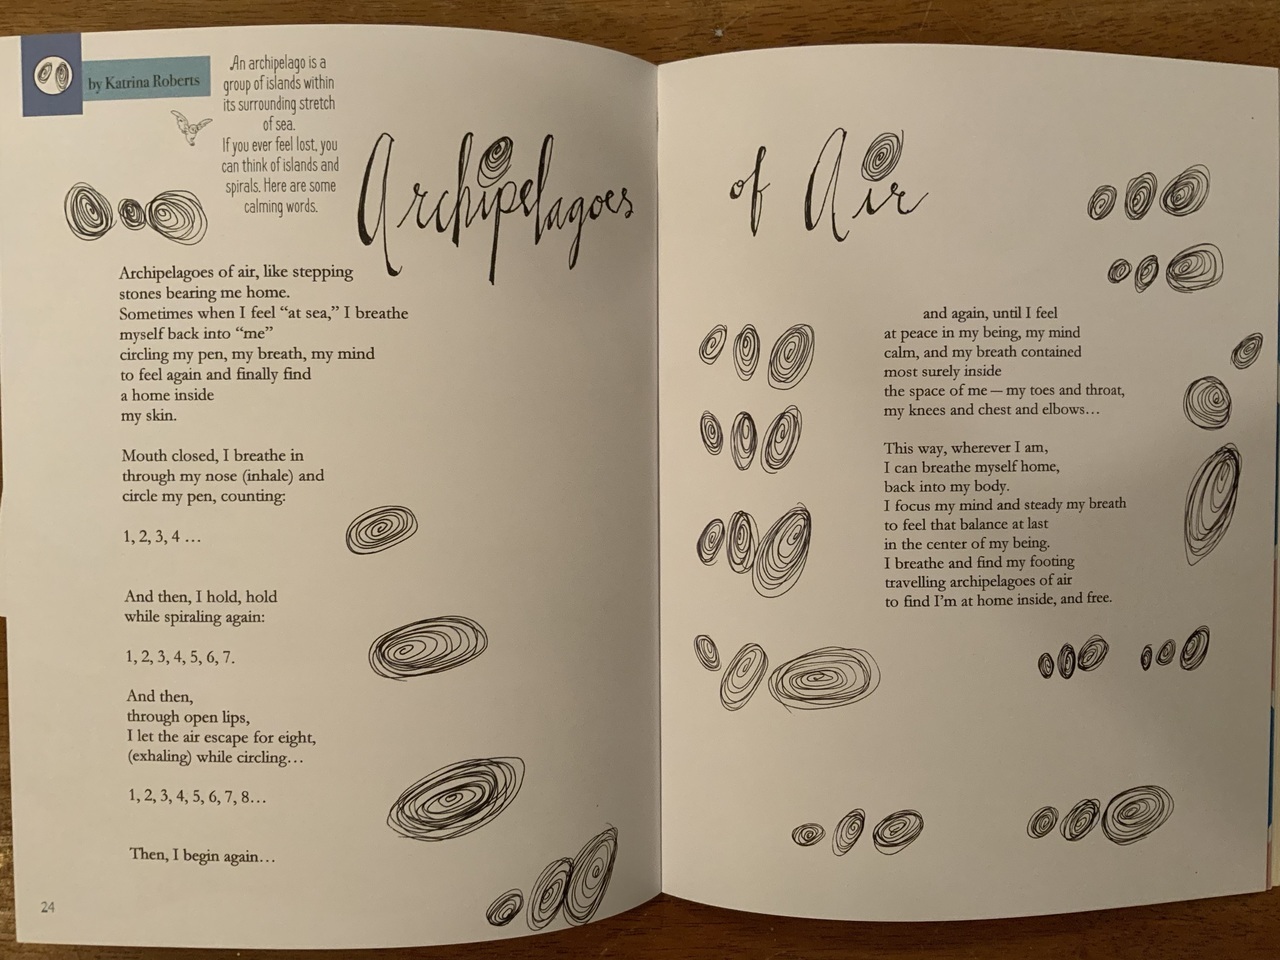 by Katrina Roberts
An archipelago is a
group of islands within
its surrounding stretch
of sea.
If you ever feel lost, you
can think of islands and
spirals. Here are some
calming words.
Archipelagoes of Air
Archipelagoes of air, like stepping
stones bearing me home.
Sometimes when I feel “at sea,” I breathe
myself back into “me”
circling my pen, my breath, my mind
to feel again and finally find
a home inside
my skin.
Mouth closed, I breathe in
through my nose (inhale) and
circle my pen, counting:
1, 2, 3, 4 …
And then, I hold, hold
while spiraling again:
1, 2, 3, 4, 5, 6, 7.
And then,
through open lips,
I let the air escape for eight,
(exhaling) while circling…
1, 2, 3, 4, 5, 6, 7, 8…
Then, I begin again…
24
and again, until I feel
at peace in my being, my mind
calm, and my breath contained
most surely inside
the space of me — my toes and throat,
my knees and chest and elbows…
This way, wherever I am,
I can breathe myself home,
back into my body.
I focus my mind and steady my breath
to feel that balance at last
in the center of my being.
I breathe and find my footing
travelling archipelagoes of air
to find I’m at home inside, and free.